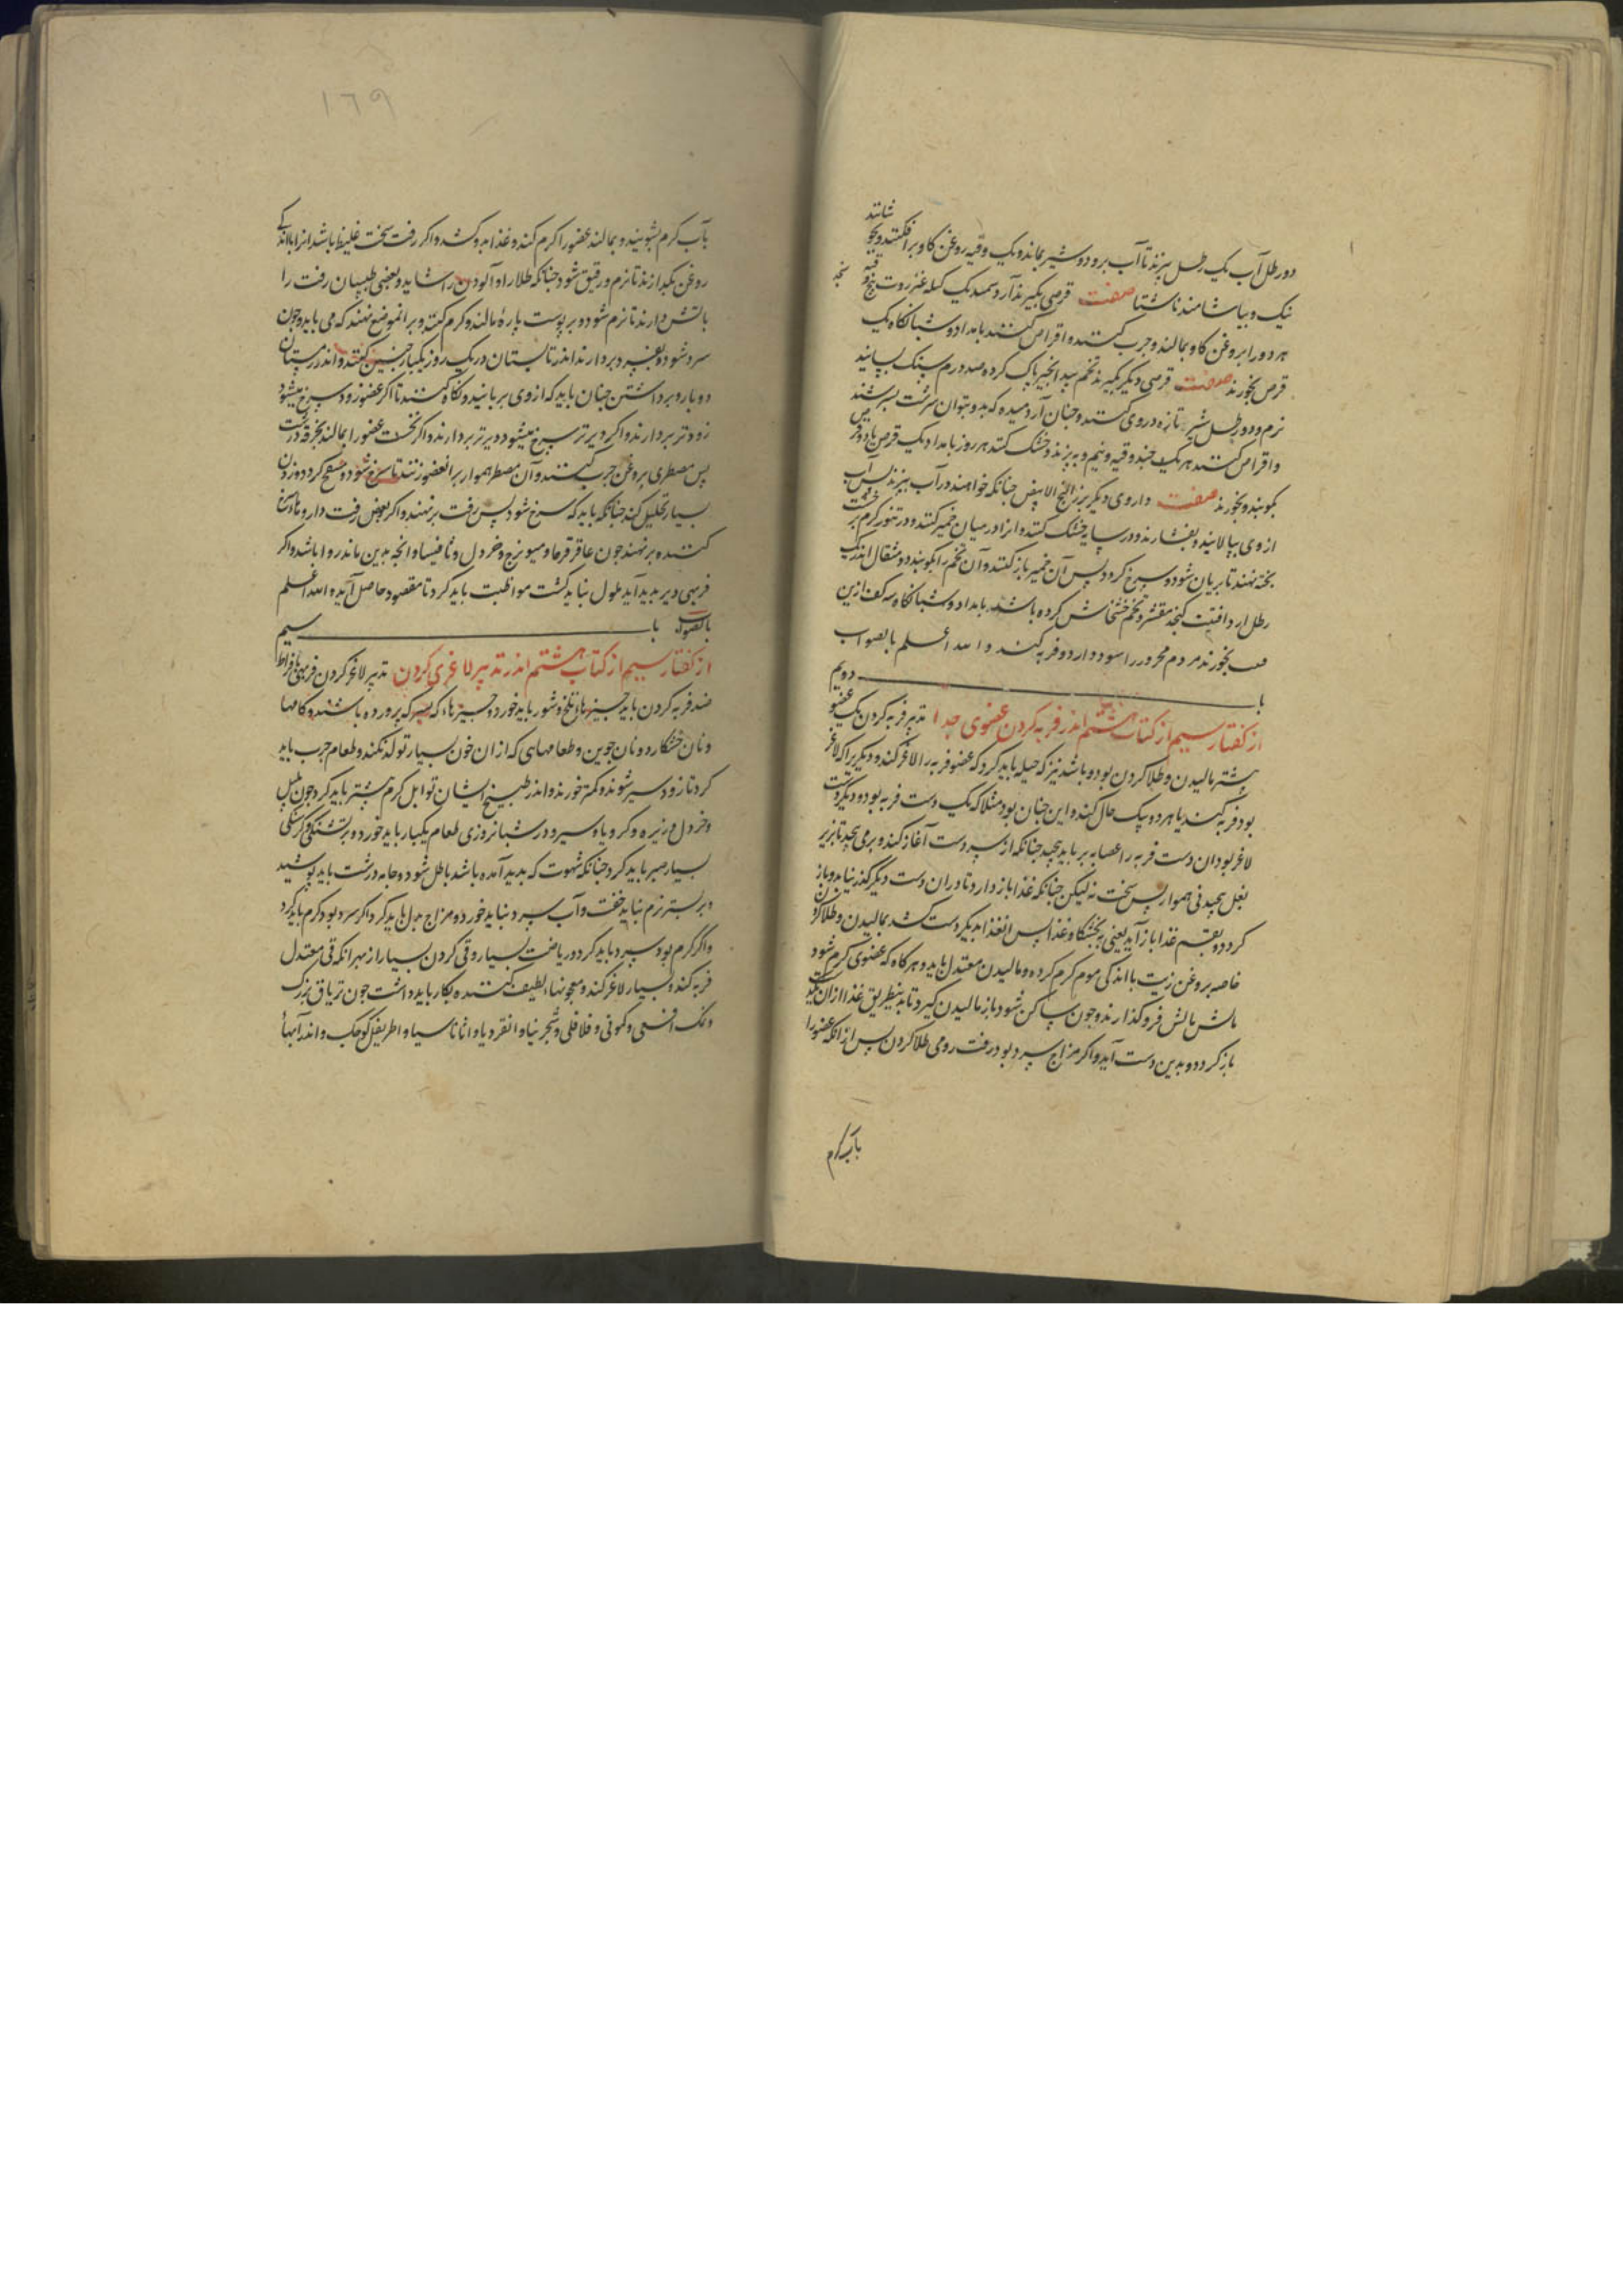 دو رطل آب یک رطل بپزند تا آب برود و شیر بماند و یک وقیه روغن کاو بر افکنند و بجو شانند
نیک و بیاشامند ناشتا صفت قرصی بکیرند آرد سمید یک کیله عنزروت پنج وقیه
هر دو را بروغن کاو بمالند و چرب کنند و اقراص کنند بامداد و شبانکاه یک
قرص بخورند صفت قرصی دیکر بکیرند تخم بید انجیر پاک کرده صد درم سنک بسایند
نرم و دو رطل شیر تازه در وی کنند و چنان آرد میده که بدو بتوان سرشت بسرشند
و اقراص کنند هر یک چند وقیه و نیم و بپزند و خشک کنند هر روز بامداد یک قرص یا دو قرص
بکوبند و بخورند صفت داروی دیکر بزر البنج الابیض چنانکه خواهند در آب بپزند پس آب
از وی بپالایند و بفشارند و در سایه خشک کنند و انرا در میان خمیر کنند و در تنور کرم بر خشت
پخته نهند تا بریان شود و سرخ کردد پس آن خمیر باز کنند و آن تخم را بکوبند دو مثقال اندر یک
رطل ارد کنجد مقشر و تخم خشخاش کرده باشند بامداد و شبانکاه سه کف ازین
بخورند مردم محرور را سود دارد و فربه کند و الله اعلم بالصواب
با دویم
از کفتار سیم از کتاب هشتم اندر فربه کردن عضوی جدا تدبیر فربه کردن یک عضو
بیشتر مالیدن و طلا کردن بود و باشد نیز که حیله باید کرد که عضو فربه را لاغر کند و دیکر را که لاغر
بود فربه کند یا هر دو بیک حال کند و این چنان بود مثلا که یک دست فربه بود و دیکر دست
لاغر بود ان دست فربه را عصابه بر باید پیچید چنانکه از سر دست آغاز کند و بر می پیچد تا بزیر
بغل پیچیدنی هموار پس سخت نه لیکن چنانکه غذا باز دارد تا در ان دست دیکر کذر نیابد و باز
کردد و بقسم غذا باز آید یعنی به بخشکاه غذا پس ان غذا بدیکر دست کشد بمالیدن و طلا کردن
خاصه بروغن زیت با اندکی موم کرم کرده و مالیدن معتدل باید و هرکاه که عضوی کرم شود
مالش فرو کذارند و چون ساکن شود باز مالیدن کیرد تا بدینطریق غذا از ان
باز کردد و بدین دست آید و اکر مزاج سرد بود زفت رومی طلا کردن پس از انکه عضو را
بآب کرم
۱٦۹
بآب کرم بشویند و بمالند عضو را کرم کند و غذا بدو کشد و اکر زفت سخت غلیظ باشد انرا با اندکی
روغن بکدازند تا نرم و رقیق شود چنانکه طلا را و آلودن را شاید و بعضی طبیبان زفت را
بآتش دارند تا نرم شود و بر پوست پارهٔ مالند و کرم کنند و بر انموضع نهند که می باید و چون
سرد شود بردارند اندر تابستان در یک روز یکبار چنین کنند و اندر زمستان
دو بار و برداشتن چنان باید که از وی بر بایند و نکاه کنند تا اکر عضو زود سرخ میشود
زودتر بردارند و اکر دیرتر سرخ میشود دیرتر بردارند و اکر نخست عضو را بمالند بخرقه درشت
پس مصطری بروغن چرب کنند و آن مصطر هموار بر انعضو زنند تا سرخ شود و منتفخ کردد و زدن
بسیار تحلیل کند چنانکه باید که سرخ شود پس زفت بر نهند و اکر بعوض زفت داروها سرخ
کننده برنهند چون عاقرقرحا و میویزج و خردل و ثافیسیا و انچه بدین ماند روا باشد و اکر
فربهی دیر پدید آید ملول نباید کشت مواظبت باید کرد تا مقصود حاصل آید و الله اعلم
بالصواب با سیم
از کفتار سیم از کتاب هشتم اندر تدبیر لاغری کردن تدبیر لاغر کردن فربهی بافراط
ضد فربه کردن باید چیزها تلخ و شور باید خورد و چیزهاء که بسرکه پرورده باشند و کامها
و نان خشکار و نان جوین و طعامهای که از ان خون بسیار تولد نکند و طعام چرب باید
کرد تا زود سیر شوند و کمتر خورند و اندر طبیخ ایشان توابل کرم بیشتر باید کرد چون پلپل
و خردل و زیره و کرویا و سیر و در شبانروزی طعام یکبار باید خورد و بر تشنکی و کرسنکی
بسیار صبر باید کرد چنانکه شهوت که پدید آمده باشد باطل شود و جامه درشت باید پوشید
و بر بستر نرم نباید خفت و آب سرد نباید خورد و مزاج بدل باید کرد اکر سرد بود کرم باید کرد
و اکر کرم بود سرد باید کرد و ریاضت بسیار و قی کردن بسیار از بهر انکه قی معتدل
فربه کند و بسیار لاغر کند و معجونها لطیف کننده بکار باید داشت چون تریاق بزرک
و نمک افعی و کمونی و فلافلی و شجرنیا و انقردیا و اثاناسیا و اطریفل کوچک و اندر آبهاء